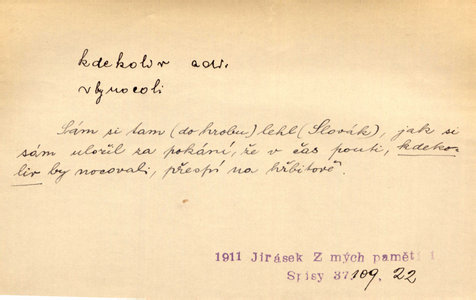 kdekoliv adv.
v by nocoli
Sám si tam (do hrobu) lehl (Slovák), jak si
sám uložil za pokání, že v čas pouti, kdeko-
liv by nocovali, přespí na hřbitově.
1911 Jirásek Z mých pamětí 1
Spisy 37 109. 22